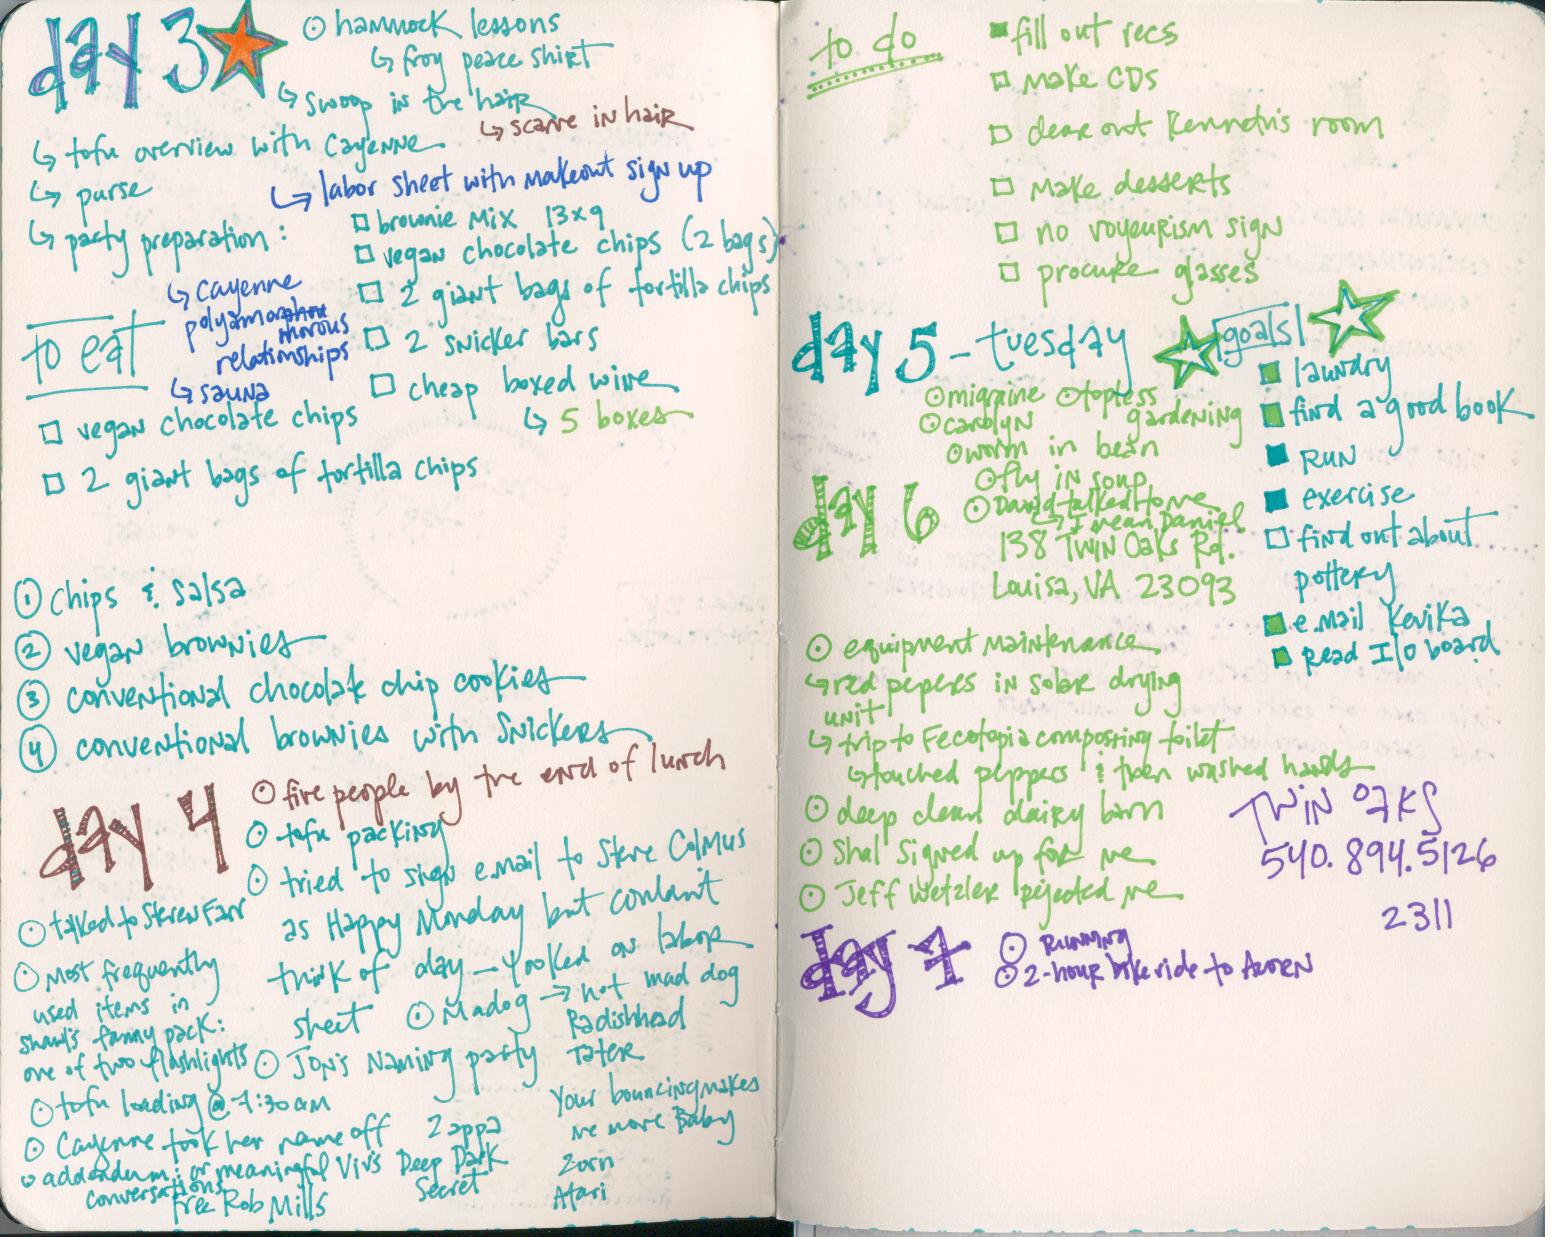 day 3
⊙ hammock lessons
↳ frog peace shirt
↳ swoop in the hair
↳ scarve in hair
↳ tofu overview with Cayenne
↳ purse
↳ labor sheet with makeout sign up
↳ party preparation:
☐ brownie mix 13x9
☐ vegan chocolate chips (2 bags)
☐ 2 giant bags of tortilla chips
☐ 2 snicker bars
☐ cheap boxed wine
↳ 5 boxes
↳ Cayenne
morous
relationships
↳ sauna
to eat
☐ vegan chocolate chips
☐ 2 giant bags of tortilla chips
① Chips & Salsa
② vegan brownies
③ conventional chocolate chip cookies
④ conventional brownies with Snickers
day 4
⊙ five people by the end of lunch
⊙ tofu packing
⊙ tried to sign e.mail to Steve Colmus
as Happy Monday but couldn't
think of day - looked on labor
sheet
⊙ talked to Steven Farr
⊙ Most frequently
used items in
fanny pack:
one of two flashlights
⊙ tofu loading @ 7:30 am
⊙ Cayenne took her name off
⊙ addendum: or meaningful
conversations
free Rob Mills
⊙ Madog → not mad dog
⊙ Jon's Naming party
Radishhead
Tater
Your bouncing makes
me more Baby
Zappa
Viv's Deep Dark
Secret
Zorn
Atari
to do
■ fill out recs
☐ make CDs
☐ clear out Kenneth's room
☐ make desserts
☐ no voyeurism sign
☐ procure glasses
day 5 - tuesday
⊙ migraine
⊙ topless
gardening
⊙ carolyn
⊙ worm in bean
⊙ fly in soup
goals!
■ laundry
■ find a good book
■ RUN
■ exercise
☐ find out about
pottery
■ e.mail Kevika
■ Read I/O board
day 6
⊙ David talked to me
↳ I mean Daniel
138 Twin Oaks Rd.
Louisa, VA 23093
⊙ equipment maintenance
↳ red pepers in solar drying
unit
↳ trip to Fecotopia composting toilet
↳ touched peppers & then washed hands
⊙ deep clean dairy barn
⊙ Shal signed up for me
⊙ Jeff Wetzler rejected me
TWIN OAKS
540.894.5126
2311
day 7
⊙ RUNNING
⊙ 2-hour bike ride to Acorn